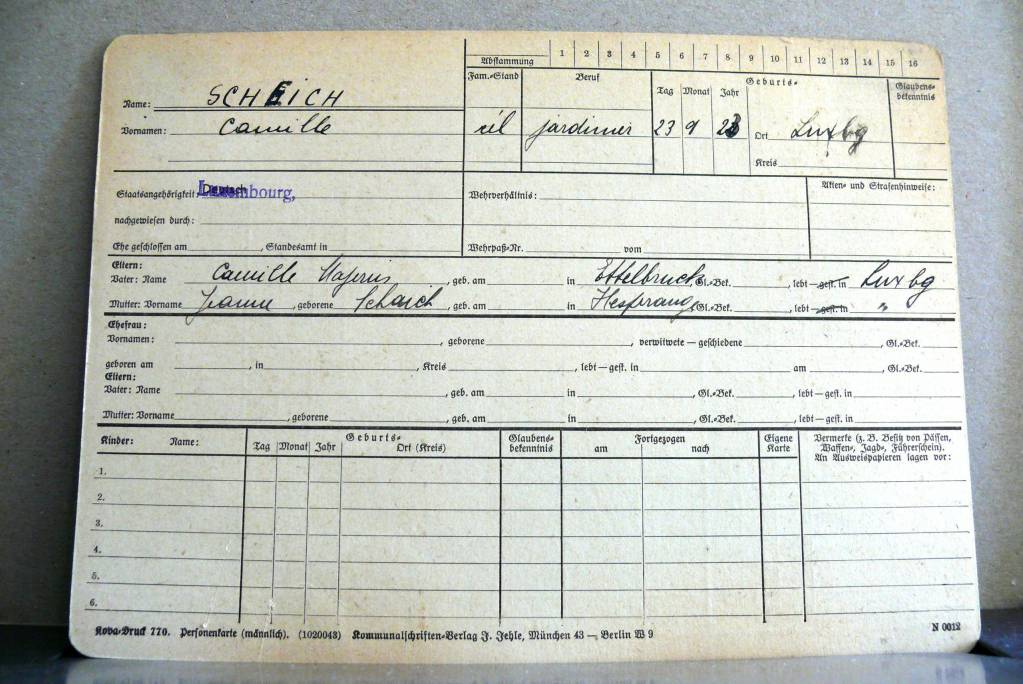 Abstammung 1 2 3 4 5 6 7 8 9 10 11 12 13 14 15 16
Fam.=Stand Beruf Geburts= Glaubens=
bekenntnis
Tag Monat Jahr
Name: SCHEICH
Vornamen: Camille cél jardinier 23 9 23 Ort Luxbg
Kreis
Staatsangehörigkeit: Luxembourg, Wehrverhältnis: Akten= und Strafenhinweise:
nachgewiesen durch:
Ehe geschlossen am , Standesamt in Wehrpaß=Nr. vom
Eltern:
Vater: Name Camille Majerus , geb. am in Ettelbruck, Gl.=Bek. , lebt—gest. in Luxbg
Mutter: Vorname Jeanne , geborene Schaich , geb. am in Hesperang, Gl.=Bek. , lebt—gest. in "
Ehefrau:
Vornamen: , geborene , verwitwete — geschiedene , Gl.=Bek.
geboren am , in , Kreis , lebt — gest. in am , Gl.=Bek.
Eltern:
Vater: Name , geb. am in , Gl.=Bek. , lebt—gest. in
Mutter: Vorname , geborene , geb. am in , Gl.=Bek. , lebt—gest. in
Kinder: Name: Geburts= Glaubens=
bekenntnis Fortgezogen Eigene
Karte Vermerke (z. B. Besitz von Pässen,
Waffen=, Jagd=, Führerschein).
An Ausweispapieren lagen vor:
Tag Monat Jahr Ort (Kreis) am nach
1.
2.
3.
4.
5.
6.
Kova=Druck 770. Personenkarte (männlich). (1020043) Kommunalschriften=Verlag J. Jehle, München 43 — Berlin W 9 N 0012